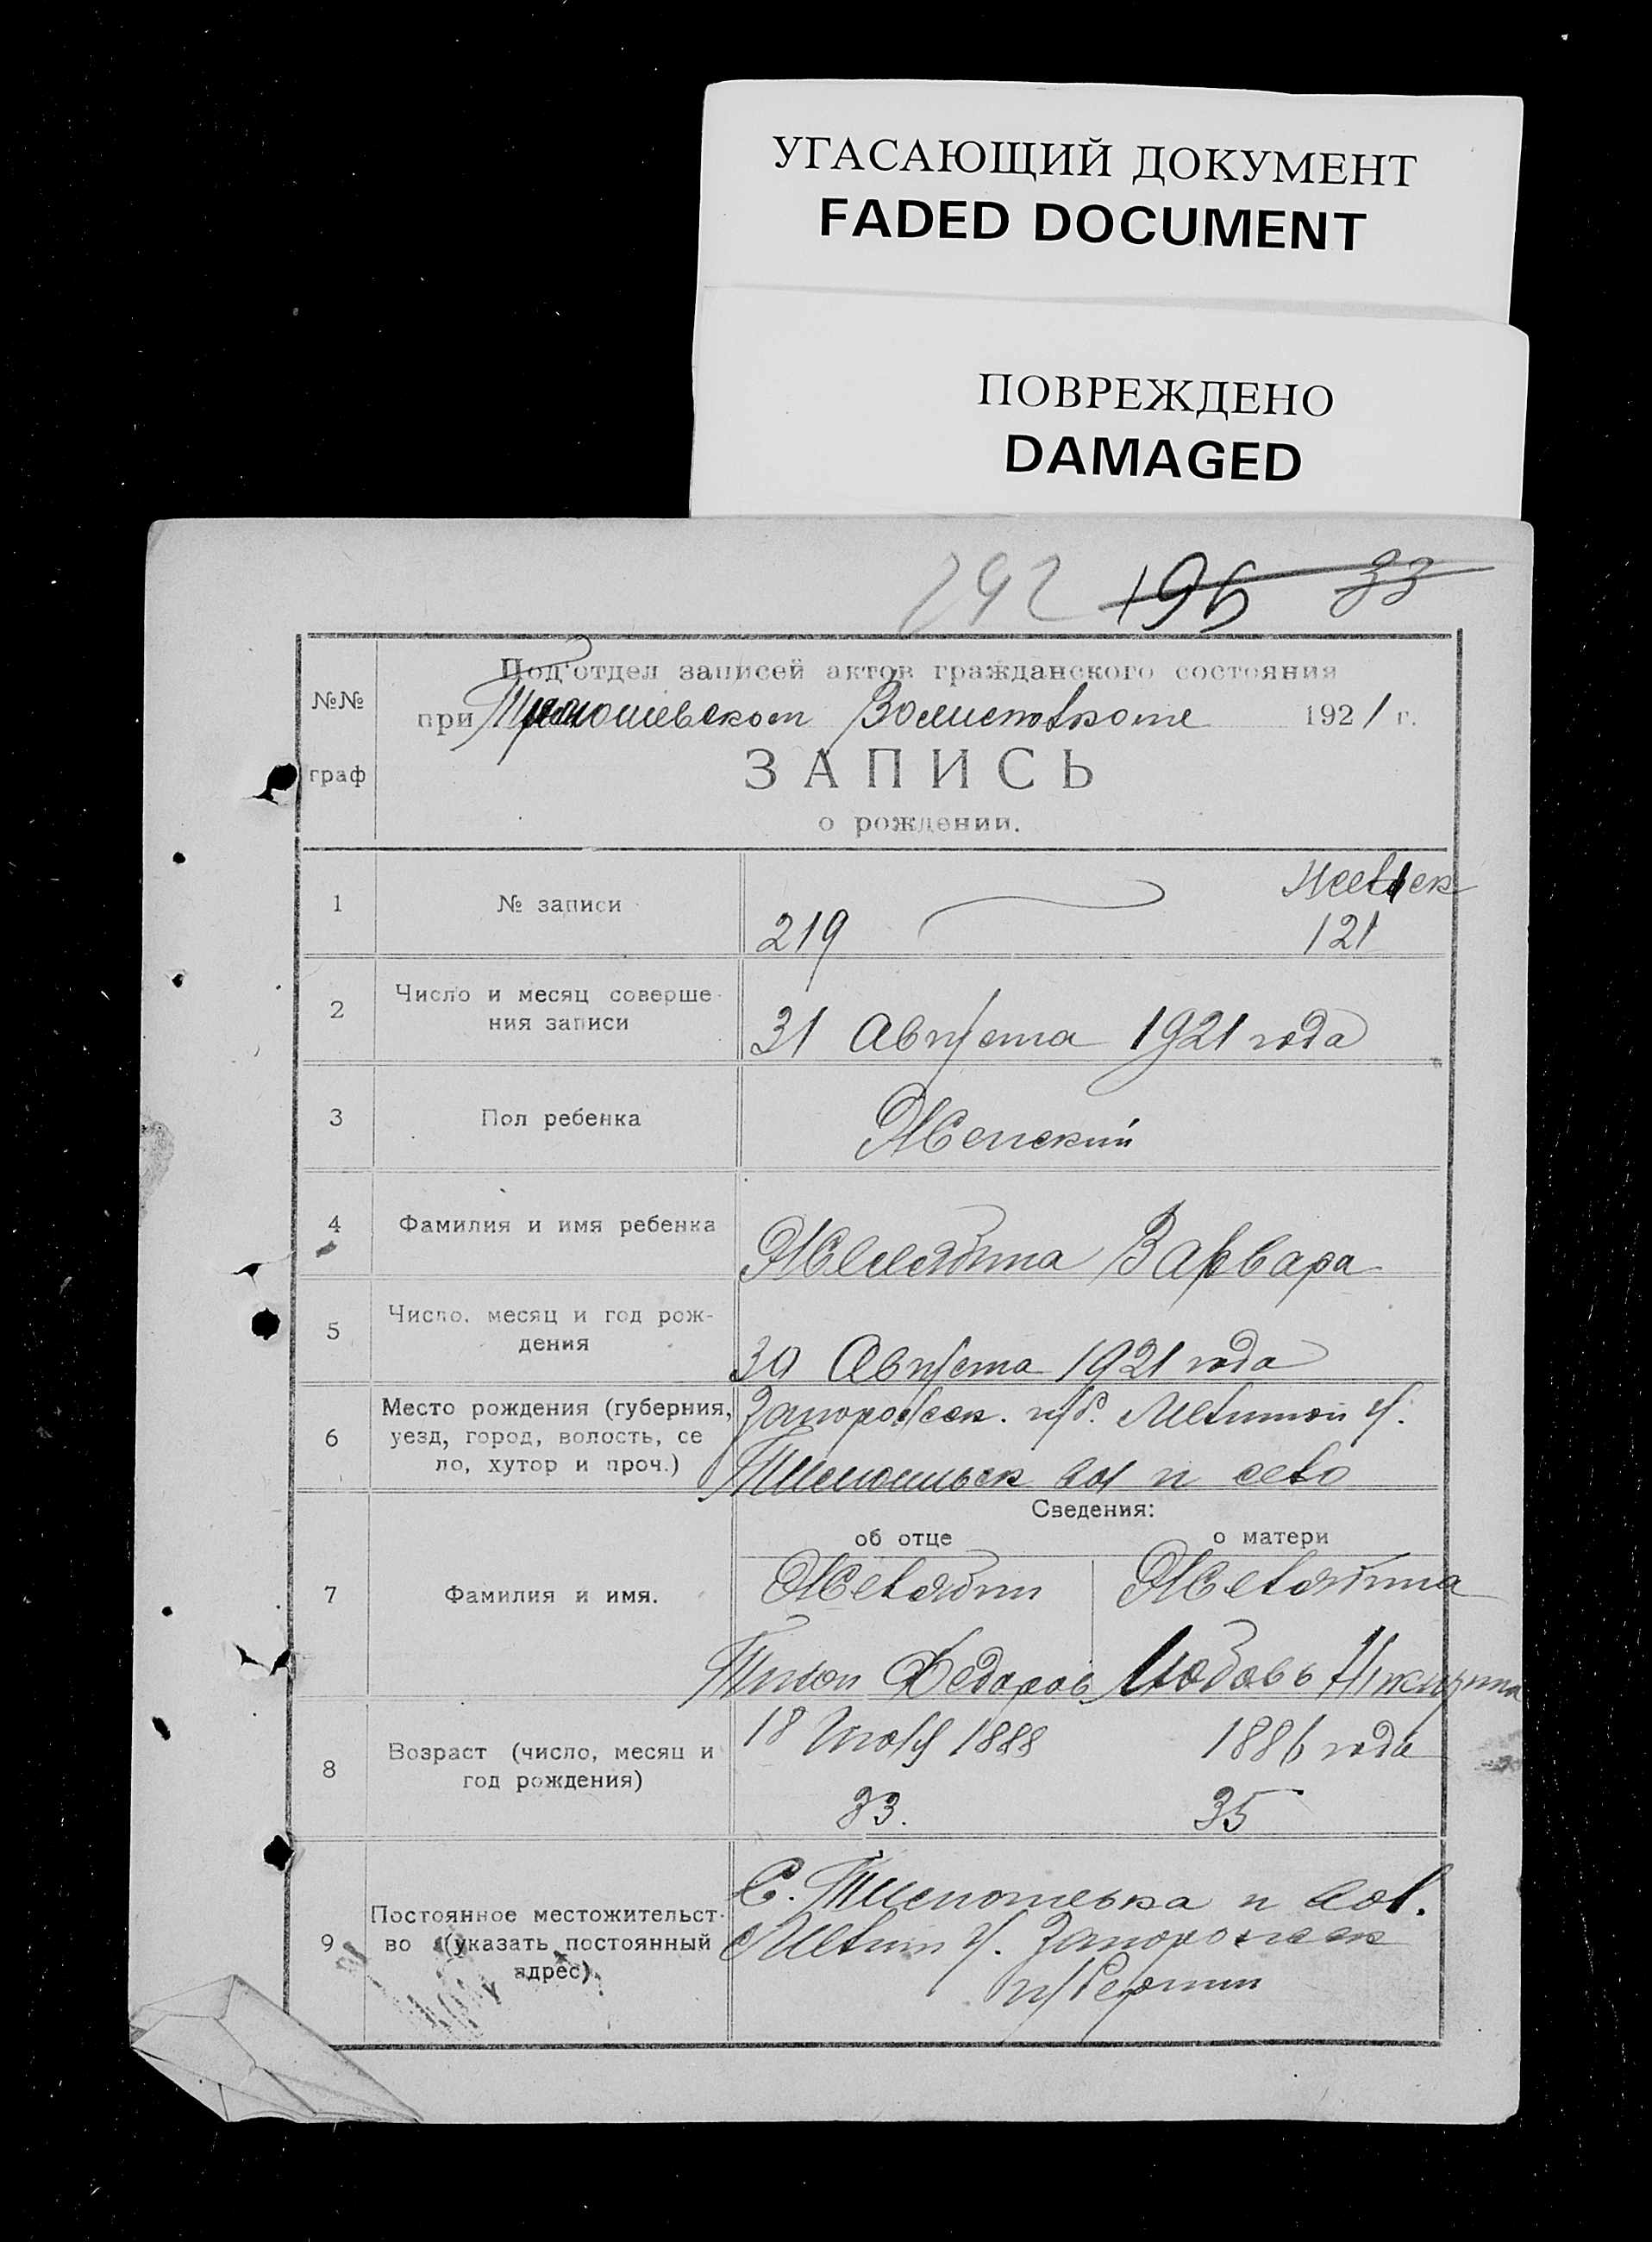 УГАСАЮЩИЙ ДОКУМЕНТ
FADED DOCUMENT
ПОВРЕЖДЕНО
DAMAGED
292 196 33
№№
граф
Под'отдел записей актов гражданского состояния
при Волисполкоме 1921 г.
ЗАПИСЬ
о рождении.
1 № записи 219 121
2 Число и месяц соверше-
ния записи
31 Августа 1921 года
3 Пол ребенка Женский
4 Фамилия и имя ребенка Варвара
5 Число. месяц и год рож-
дения
30 Августа 1921 года
6 Место рождения (губерния,
уезд, город, волость, се
ло, хутор и проч.)
Запорожск. губ. Мелитоп у.
вол и село
Сведения:
об отце о матери
7 Фамилия и имя.
Федоров Любовь
8 Возраст (число, месяц и
год рождения)
18 1888 1886 года
33. 35
9 Постоянное местожительст-
во (указать постоянный
адрес).
С. и вол.
Мелит у. Запорожск
губернии